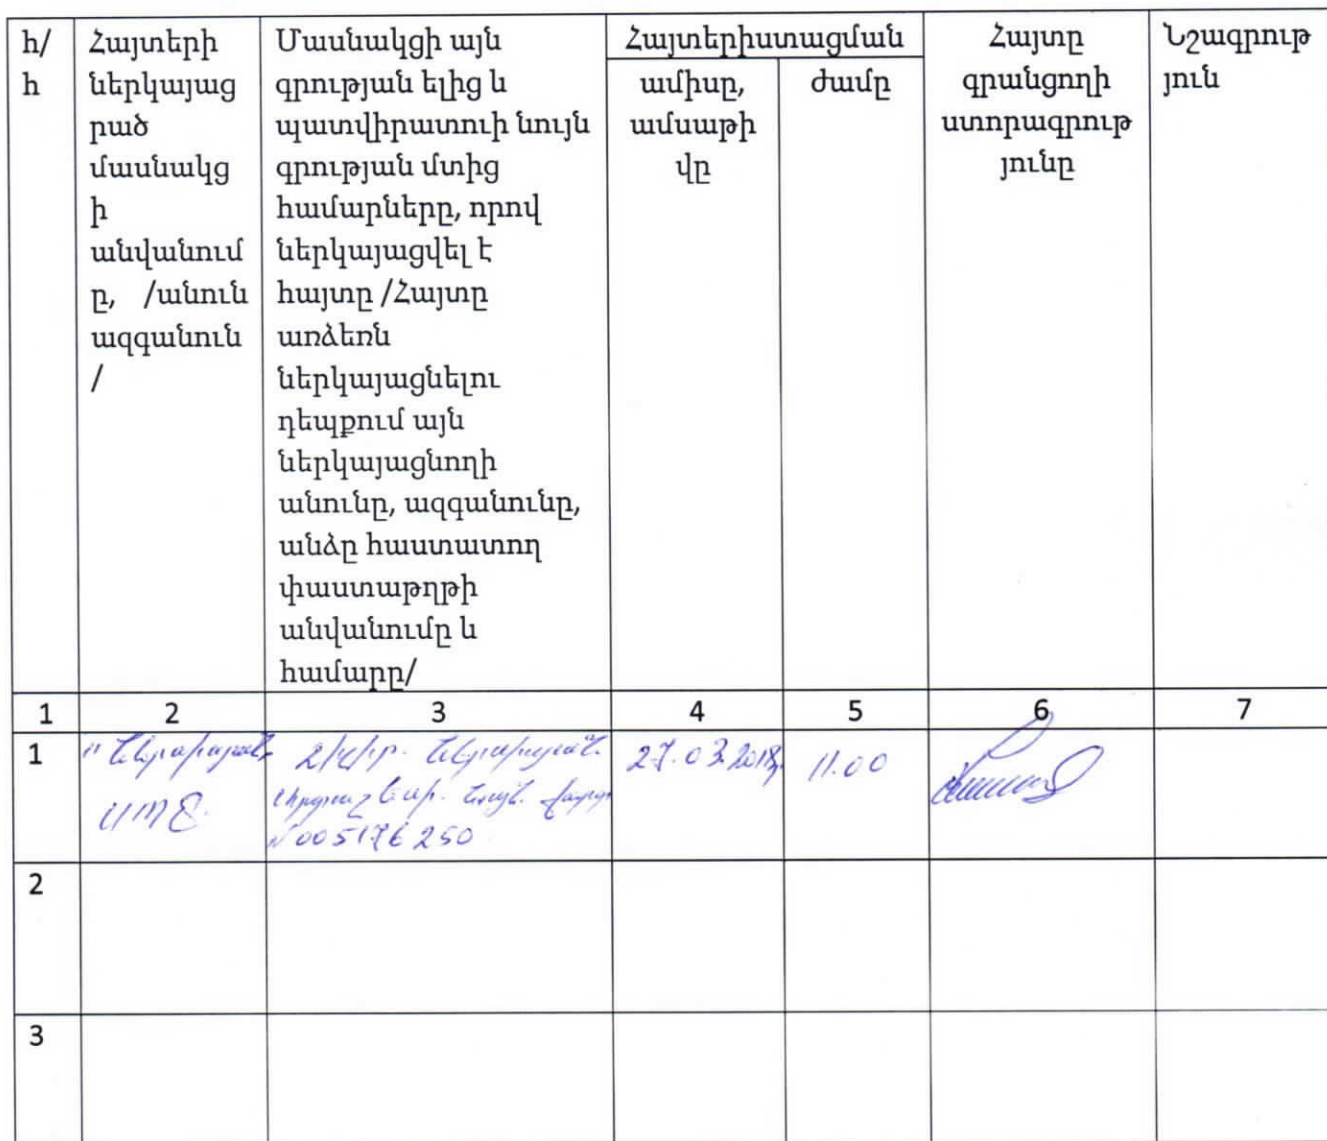 հ/
հ
Հայտերի
ներկայաց
րած
մասնակց
ի
անվանում
ը, /անուն
ազգանուն
/
Մասնակցի այն
գրության ելից և
պատվիրատուի նույն
գրության մտից
համարները, որով
ներկայացվել է
հայտը /Հայտը
առձեռն
ներկայացնելու
դեպքում այն
ներկայացնողի
անունը, ազգանունը,
անձը հաստատող
փաստաթղթի
անվանումը և
համարը/
Հայտերիստացման
ամիսը,
ամսաթի
վը
ժամը
Հայտը
գրանցողի
ստորագրութ
յունը
Նշագրութ
յուն
1 2 3 4 5 6 7
1
ՍՊԸ
27.03.2018
11.00
2
3